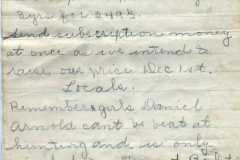 Send subscription money
at once as we intend to
raise our price Dec 1st.
Locals.
Remember girls Daniel
Arnold cant be beat at
hunting and is only